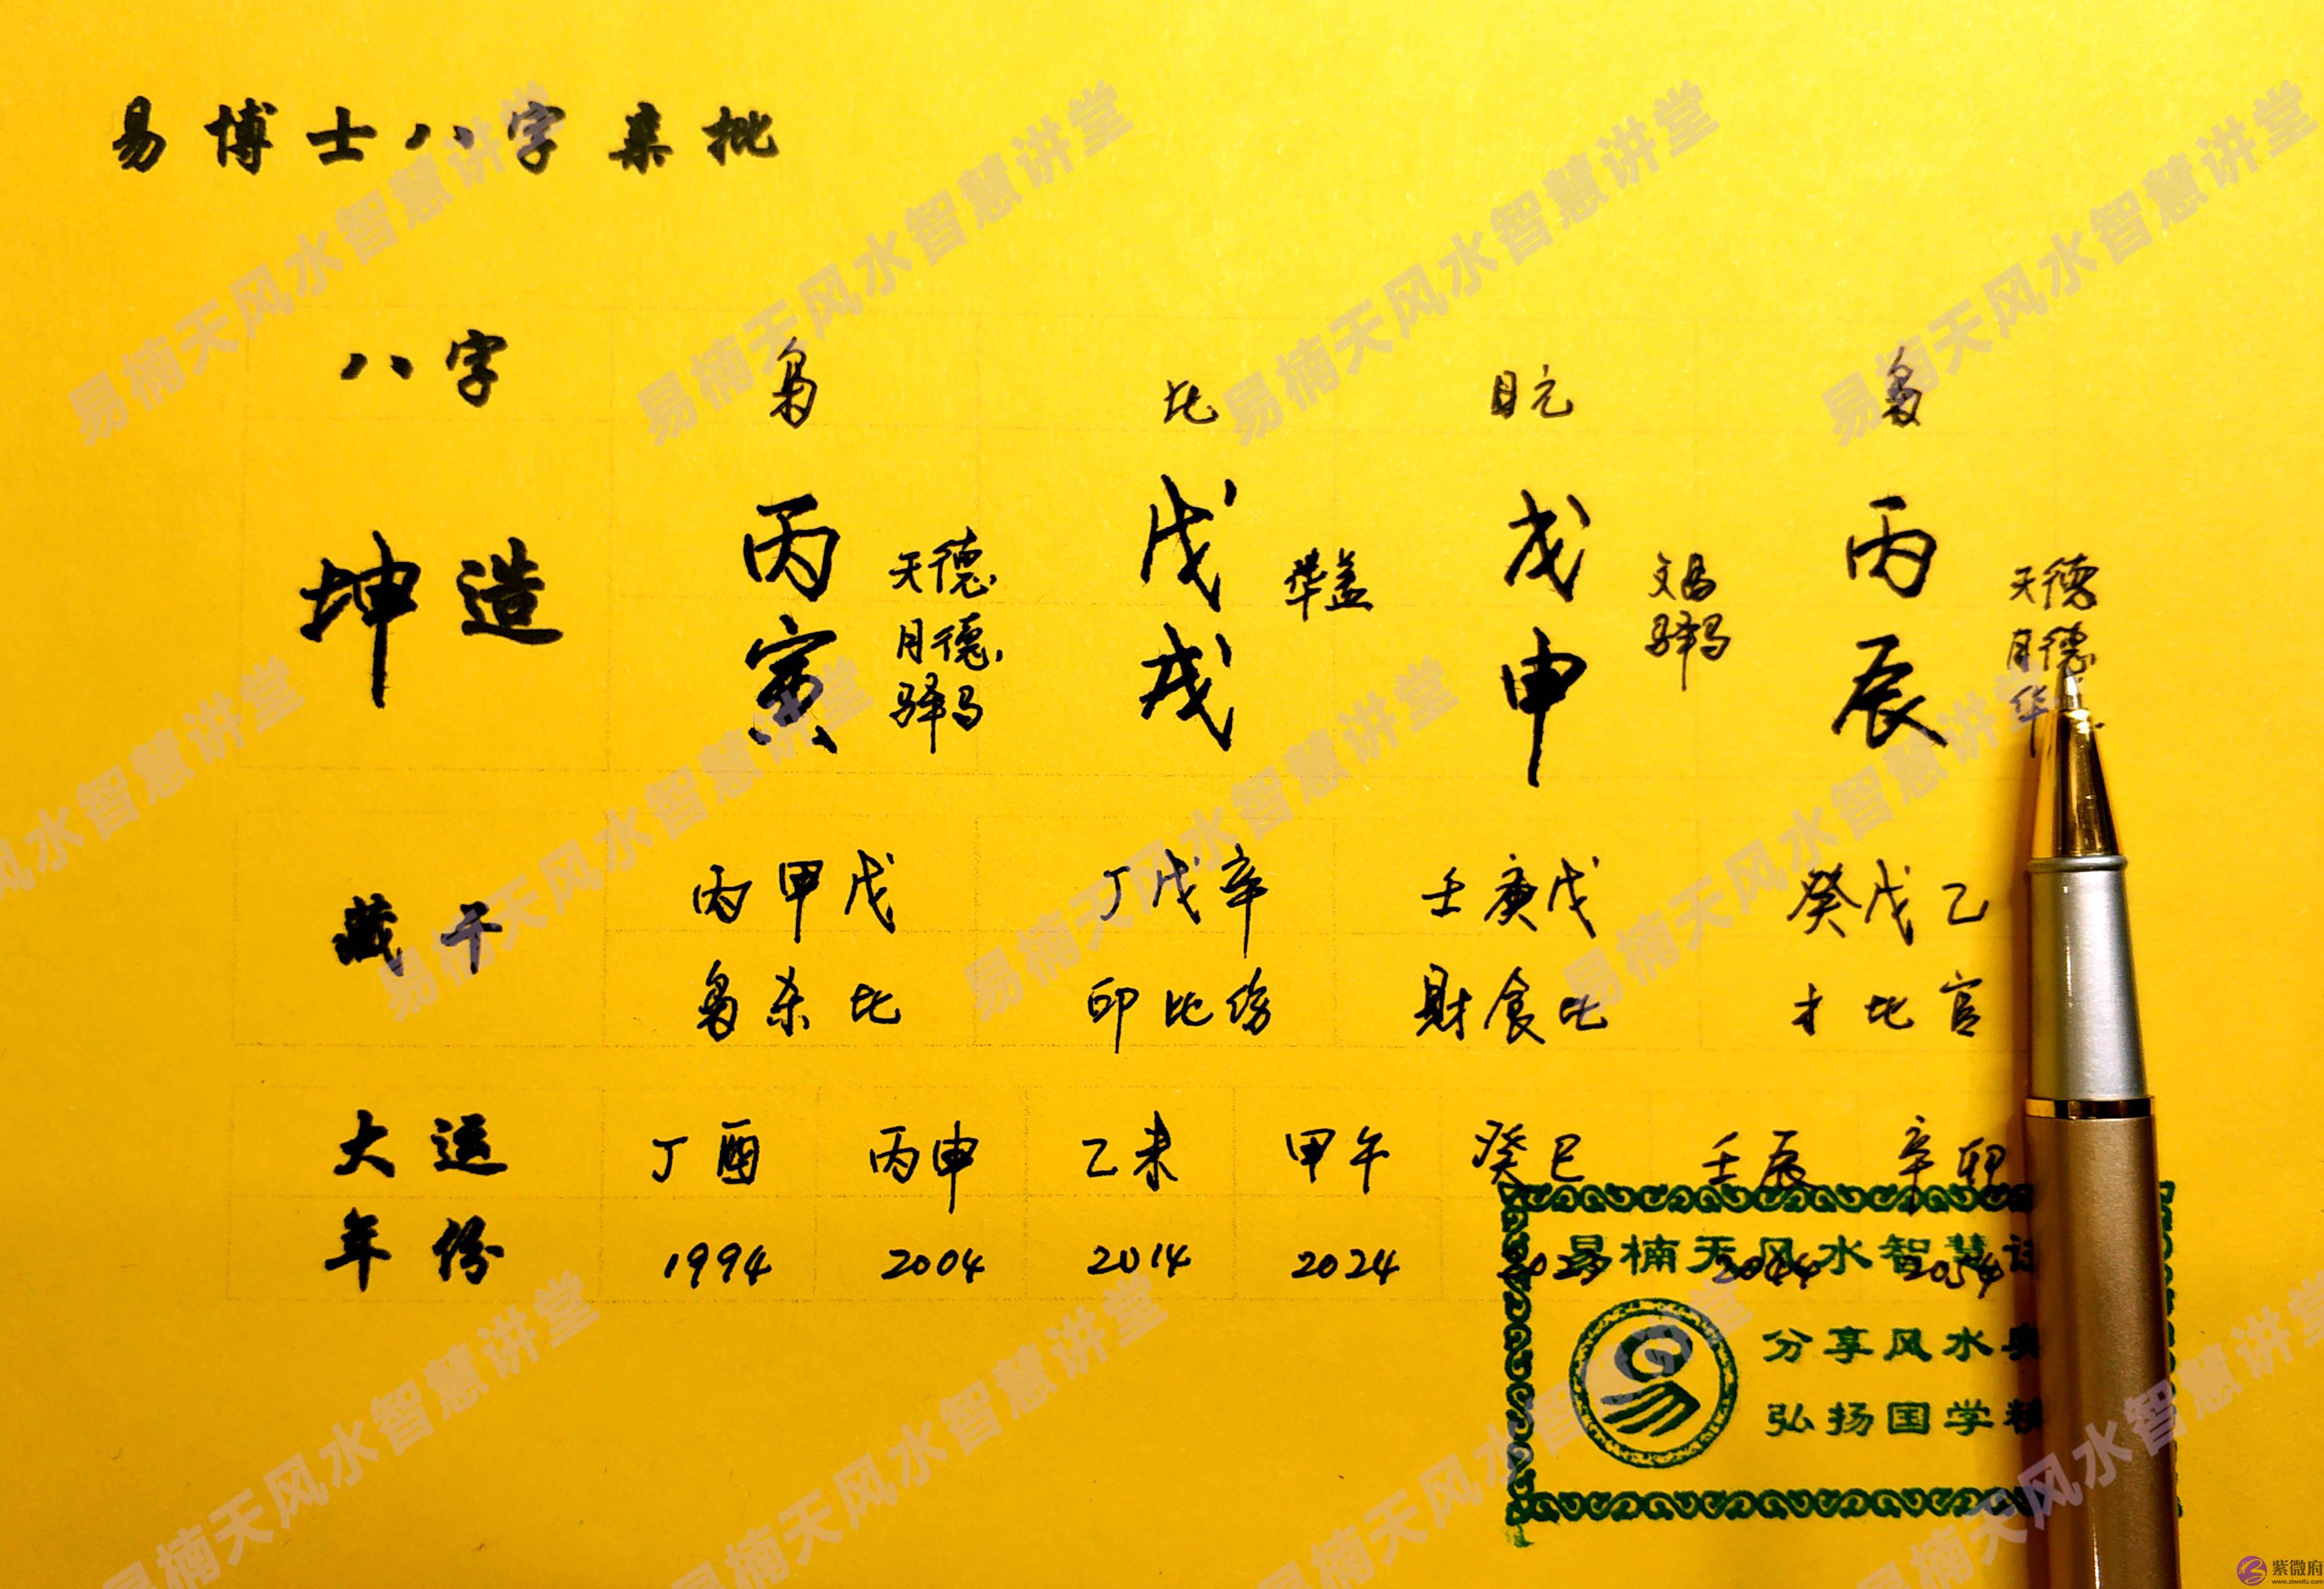 易博士八字亲批
八字 枭 比 日元 枭
坤造 丙寅 天德 月德 驿马 戊戌 华盖 戊申 文昌 驿马 丙辰 天德 月德 华
藏干 丙甲戊 丁戊辛 壬庚戊 癸戊乙
枭杀比 印比伤 财食比 才比官
大运 丁酉 丙申 乙未 甲午 癸巳 壬辰 辛卯
年份 1994 2004 2014 2024 2044 2054
易楠天风水智慧
分享风水
弘扬国学
易楠天风水智慧讲堂
紫微府
www.ziweifu.com